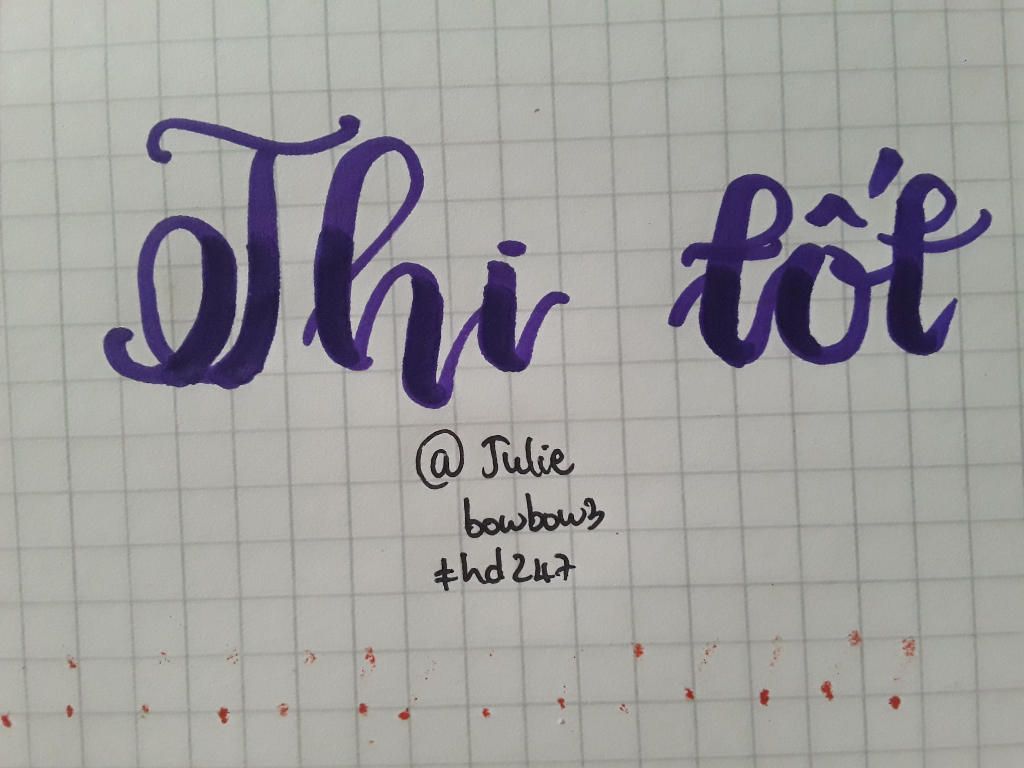 Thi tốt
@Julie
bowbow3
#hd247